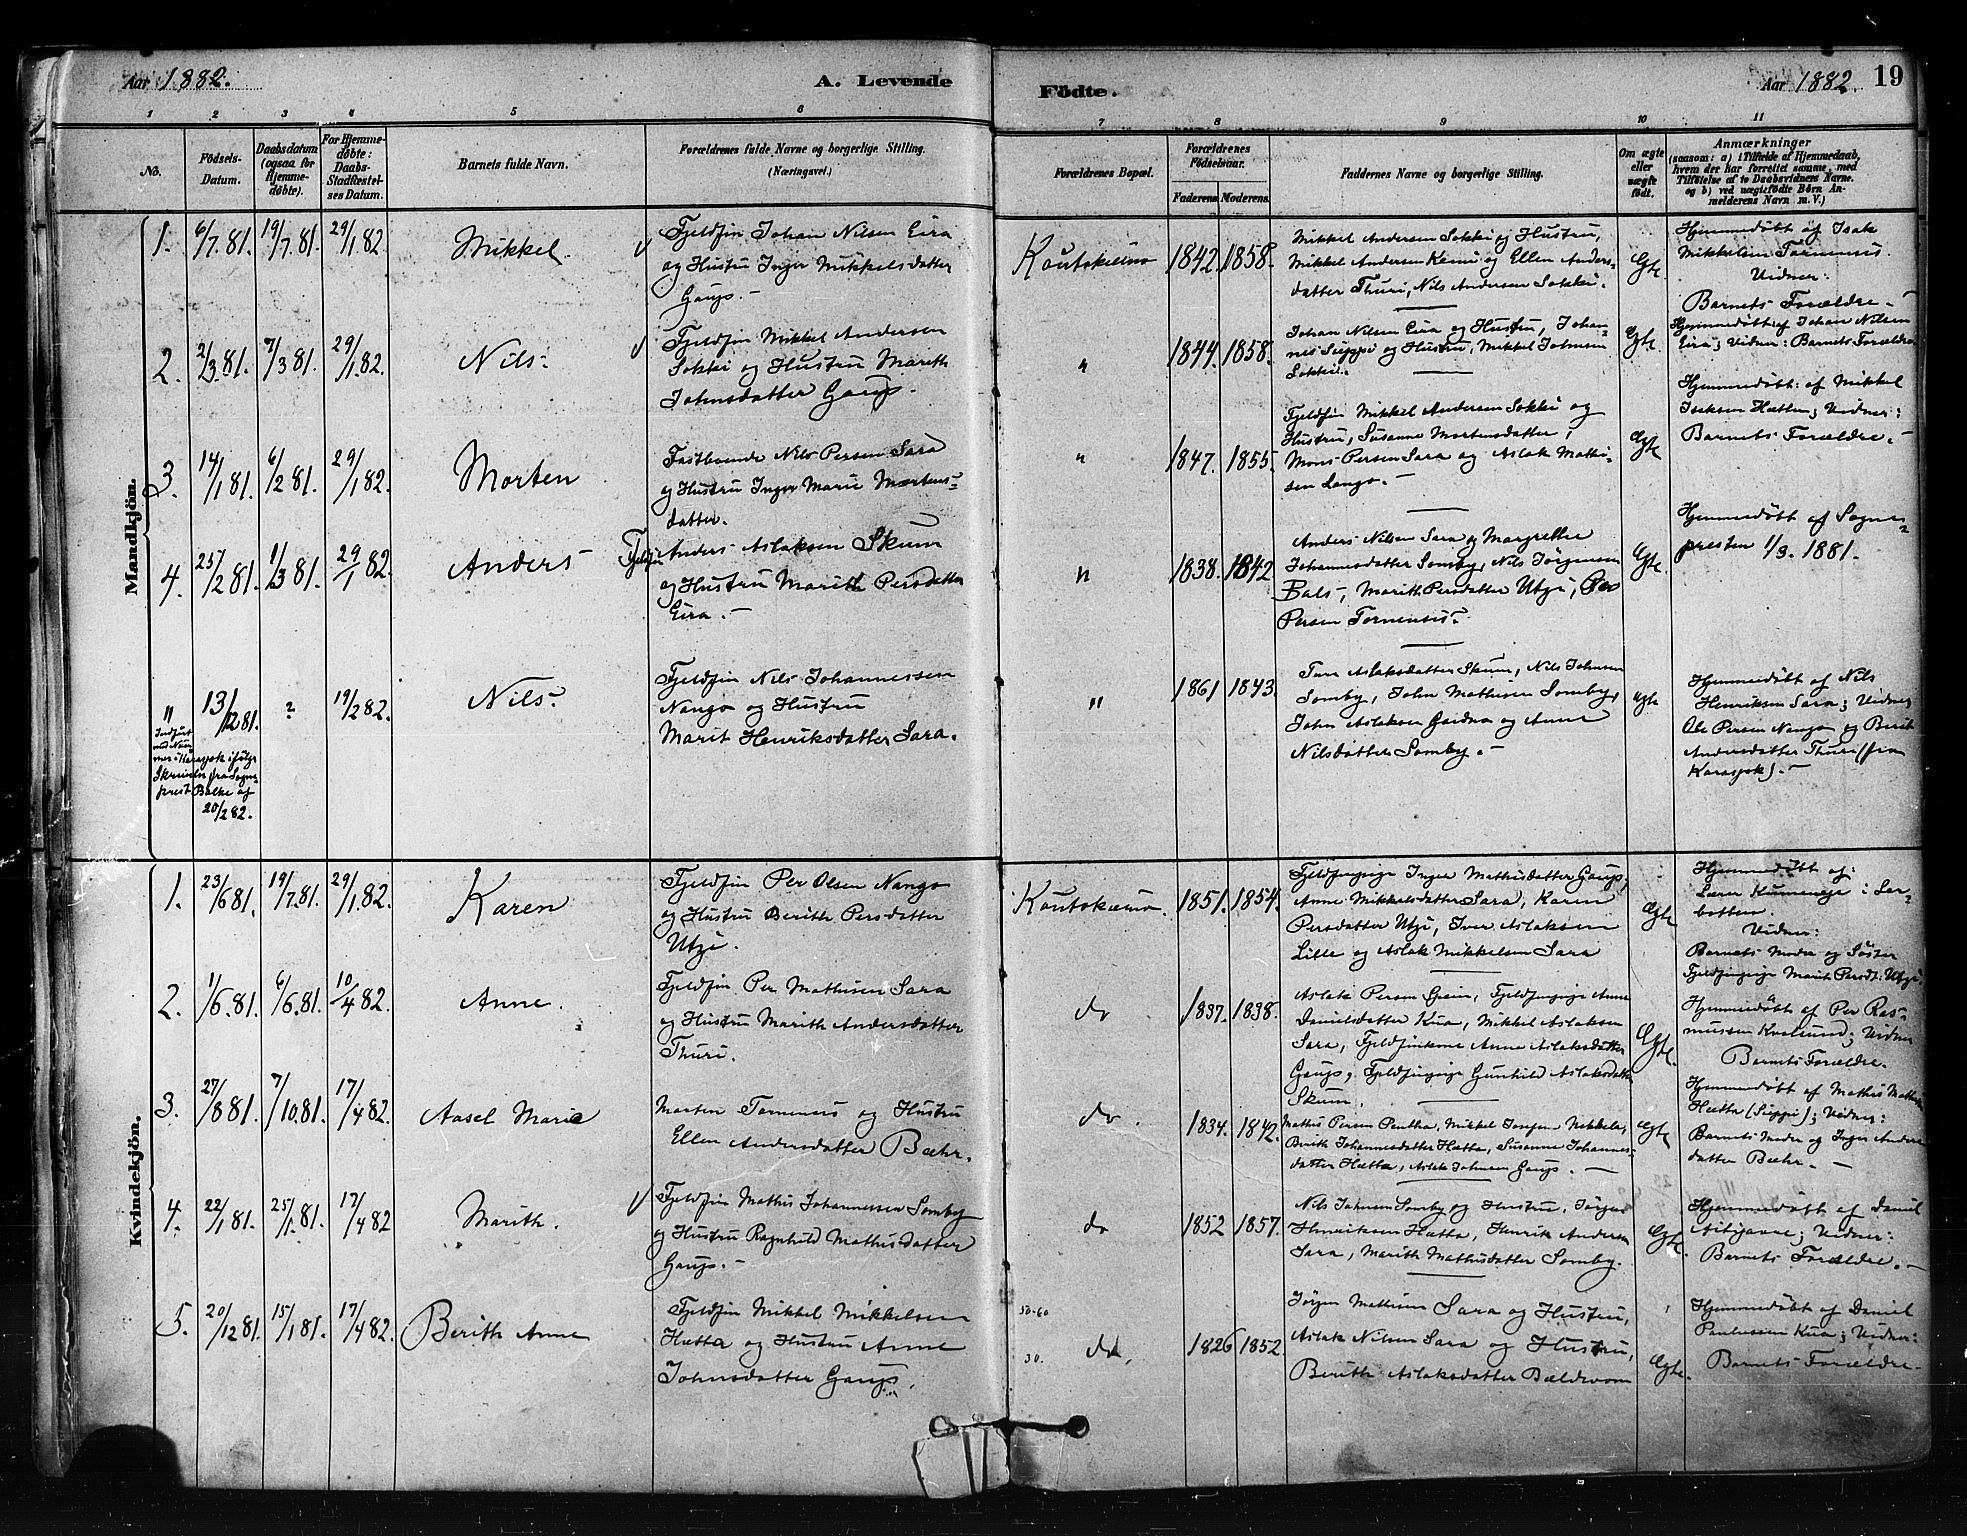 Aar 1882.
A. Levende
Fødte.
Aar 1882.
19
1 2 3 4 5 6 7 8 9 10 11
No.
Fødsels-
Datum.
Daabsdatum
(ogsaa for
Hjemme-
døbte).
For Hjemme-
døbte:
Daabs-
Stadfæstel-
ses Datum.
Barnets fulde Navn.
Forældrenes fulde Navne og borgerlige Stilling.
(Næringsvei.)
Forældrenes Bopæl.
Forældrenes
Fødselsaar.
Faderens Moderens
Faddernes Navne og borgerlige Stilling.
Om ægte
eller
uægte
født.
Anmærkninger
(saasom: a) i Tilfælde af Hjemmedaab,
hvem der har forrettet samme, med
Tilføielse af to Daabsvidners Navne.
og b) ved uægtefødte Børn An-
melderens Navn m. V.)
Mandkjön.
1. 6/7 81. 19/7 81. 29/1 82. Mikkel.
Fjeldfin Johan Nilsen Eira
og Hustru Inger Mikkelsdatter
Gaup.-
Koutokeino 1842. 1858.
Mikkel Andersen Sokki og Hustru,
Mikkel Andersen Kemi og Ellen Anders-
datter Thuri, Nils Andersen Sokki.
Egte
Hjemmedøbt af Isak
Mikkelsen Tornensis.
Vidner:
Barnets Forældre.-
2. 2/3 81. 7/3 81. 29/1 82. Nils.
Fjeldfin Mikkel Andersen
Sokki og Hustru Marith
Johnsdatter Gaup.
" 1844. 1858.
Johan Nilsen Eira og Hustru, Johan-
nis Suppi og Hustru, Mikkel Johnsen
Sokki.
Egte
Hjemmedøbt af Johan Nilsen
Eira; Vidner: Barnets Forældre
3. 14/1 81. 6/2 81. 29/1 82. Morten
Fastboende Nils Persen Sara
og Hustru Inger Marie Mortens-
datter.
" 1847. 1855.
Fjeldfin Mikkel Andersen Sokki og
Hustru, Susanne Mortensdatter,
Mons Persen Sara og Aslak Mathi-
sen Lango.-
Egte
Hjemmedøbt af Mikkel
Isaksen Hætta; Vidner:
Barnets Forældre.-
4. 25/2 81. 1/3 81. 29/1 82. Anders
Fjeldfin Anders Aslaksen Skum
og Hustru Marith Persdatter
Eira.-
" 1838. 1842
Anders Nilsen Sara og Margrethe
Johannesdatter Somby, Nils Jørgensen
Bals, Marith Persdatter Utzi, Per
Persen Tornensis.
Egte
Hjemmedøbt af Sogne-
presten 1/3. 1881.
" 13/12 81. ? 19/2 82. Nils.
Indført
med Num-
mer i Karasjok ifølge
Skrivelse fra Sogne-
prest Balke af
20/2 82.
Fjeldfin Nils Johannessen
Nango og Hustru
Marit Henriksdatter Sara.
" 1861 1843.
Aslaksdatter Skum, Nils Johnsen
Somby, John Mathisen Somby,
John Aslaksen Gaidna og Anne
Nilsdatter Somby.-
Egte
Hjemmedøbt af Nils
Henriksen Sara; Vidner
Ole Persen Nango og Berit
Andersdatter Thuri (fra
Karasjok).-
Kvindekjön.
1. 23/6 81. 19/7 81. 29/1 82. Karen
Fjeldfin Per Olsen Nango
og Hustru Berith Persdatter
Utzi.
Koutokeino. 1851. 1854.
Fjeldfinpige Inger Mathisdatter Gaup,
Anne Mikkelsdatter Sara, Karen
Persdatter Utzi, Iver Aslaksen
Lille og Aslak Mikkelsen Sara
Egte
Hjemmedøbt af:
Lærer
Vidner:
Barnets Moder og Søster
Fjeldfinpige Marit Persdt. Utzi.
2. 1/6 81. 6/6 81. 10/4 82. Anne.
Fjeldfin Per Mathisen Sara
og Hustru Marith Andersdatter
Thuri.
do 1837. 1838.
Aslak Persen, Fjeldfinpige Anne
Danielsdatter Kua, Mikkel Aslaksen
Sara, Fjeldfinkone Anne Aslaksdatter
Gaup, Fjeldfinpige Gunhild Aslaksdatter
Skum.
Egte
Hjemmedøbt af Per Ras-
mussen Kvalsund; Vidner
Barnets Forældre.
3. 27/8 81. 7/10 81. 17/4 82. Aasel Marie
Morten Tornensis og Hustru
Ellen Andersdatter Bæhr.
do. 1834. 1842.
Mathis Persen Pentha, Mikkel Josefsen Nikkelas,
Berith Johannesdatter Hætta, Susanne Johannes-
datter Hætta, Aslak Johnsen Gaup.-
Egte
Hjemmedøbt af Mathis Mathisen
Hætta (Suppi); Vidner:
Barnets Moder og Inger Anders-
datter Bæhr.-
4. 22/1 81. 25/1 81. 17/4 82 Marith.
Fjeldfin Mathis Johannessen Somby
og Hustru Ragnhild Mathisdatter
Gaup.-
do 1852 1857.
Nils Johnsen Somby og Hustru, Jørgen
Henriksen Hætta, Henrik Andersen
Sara, Marith Mathisdatter Somby.
Egte.
Hjemmedøbt af Daniel
Vidner:
Barnets Forældre.-
5. 20/12 81. 15/1 81. 17/4 82. Berith Anne
Fjeldfin Mikkel Mikkelsen
Hætta og Hustru Anne
Johnsdatter Gaup.
50-60
30.
do. 1826 1852.
Jørgen Mathisen Sara og Hustru,
Aslak Nilsen Sara og Hustru,
Berith Aslaksdatter Bældovom
Egte.
Hjemmedøbt af Daniel
Paulussen Kua; Vidner:
Barnets Forældre.-